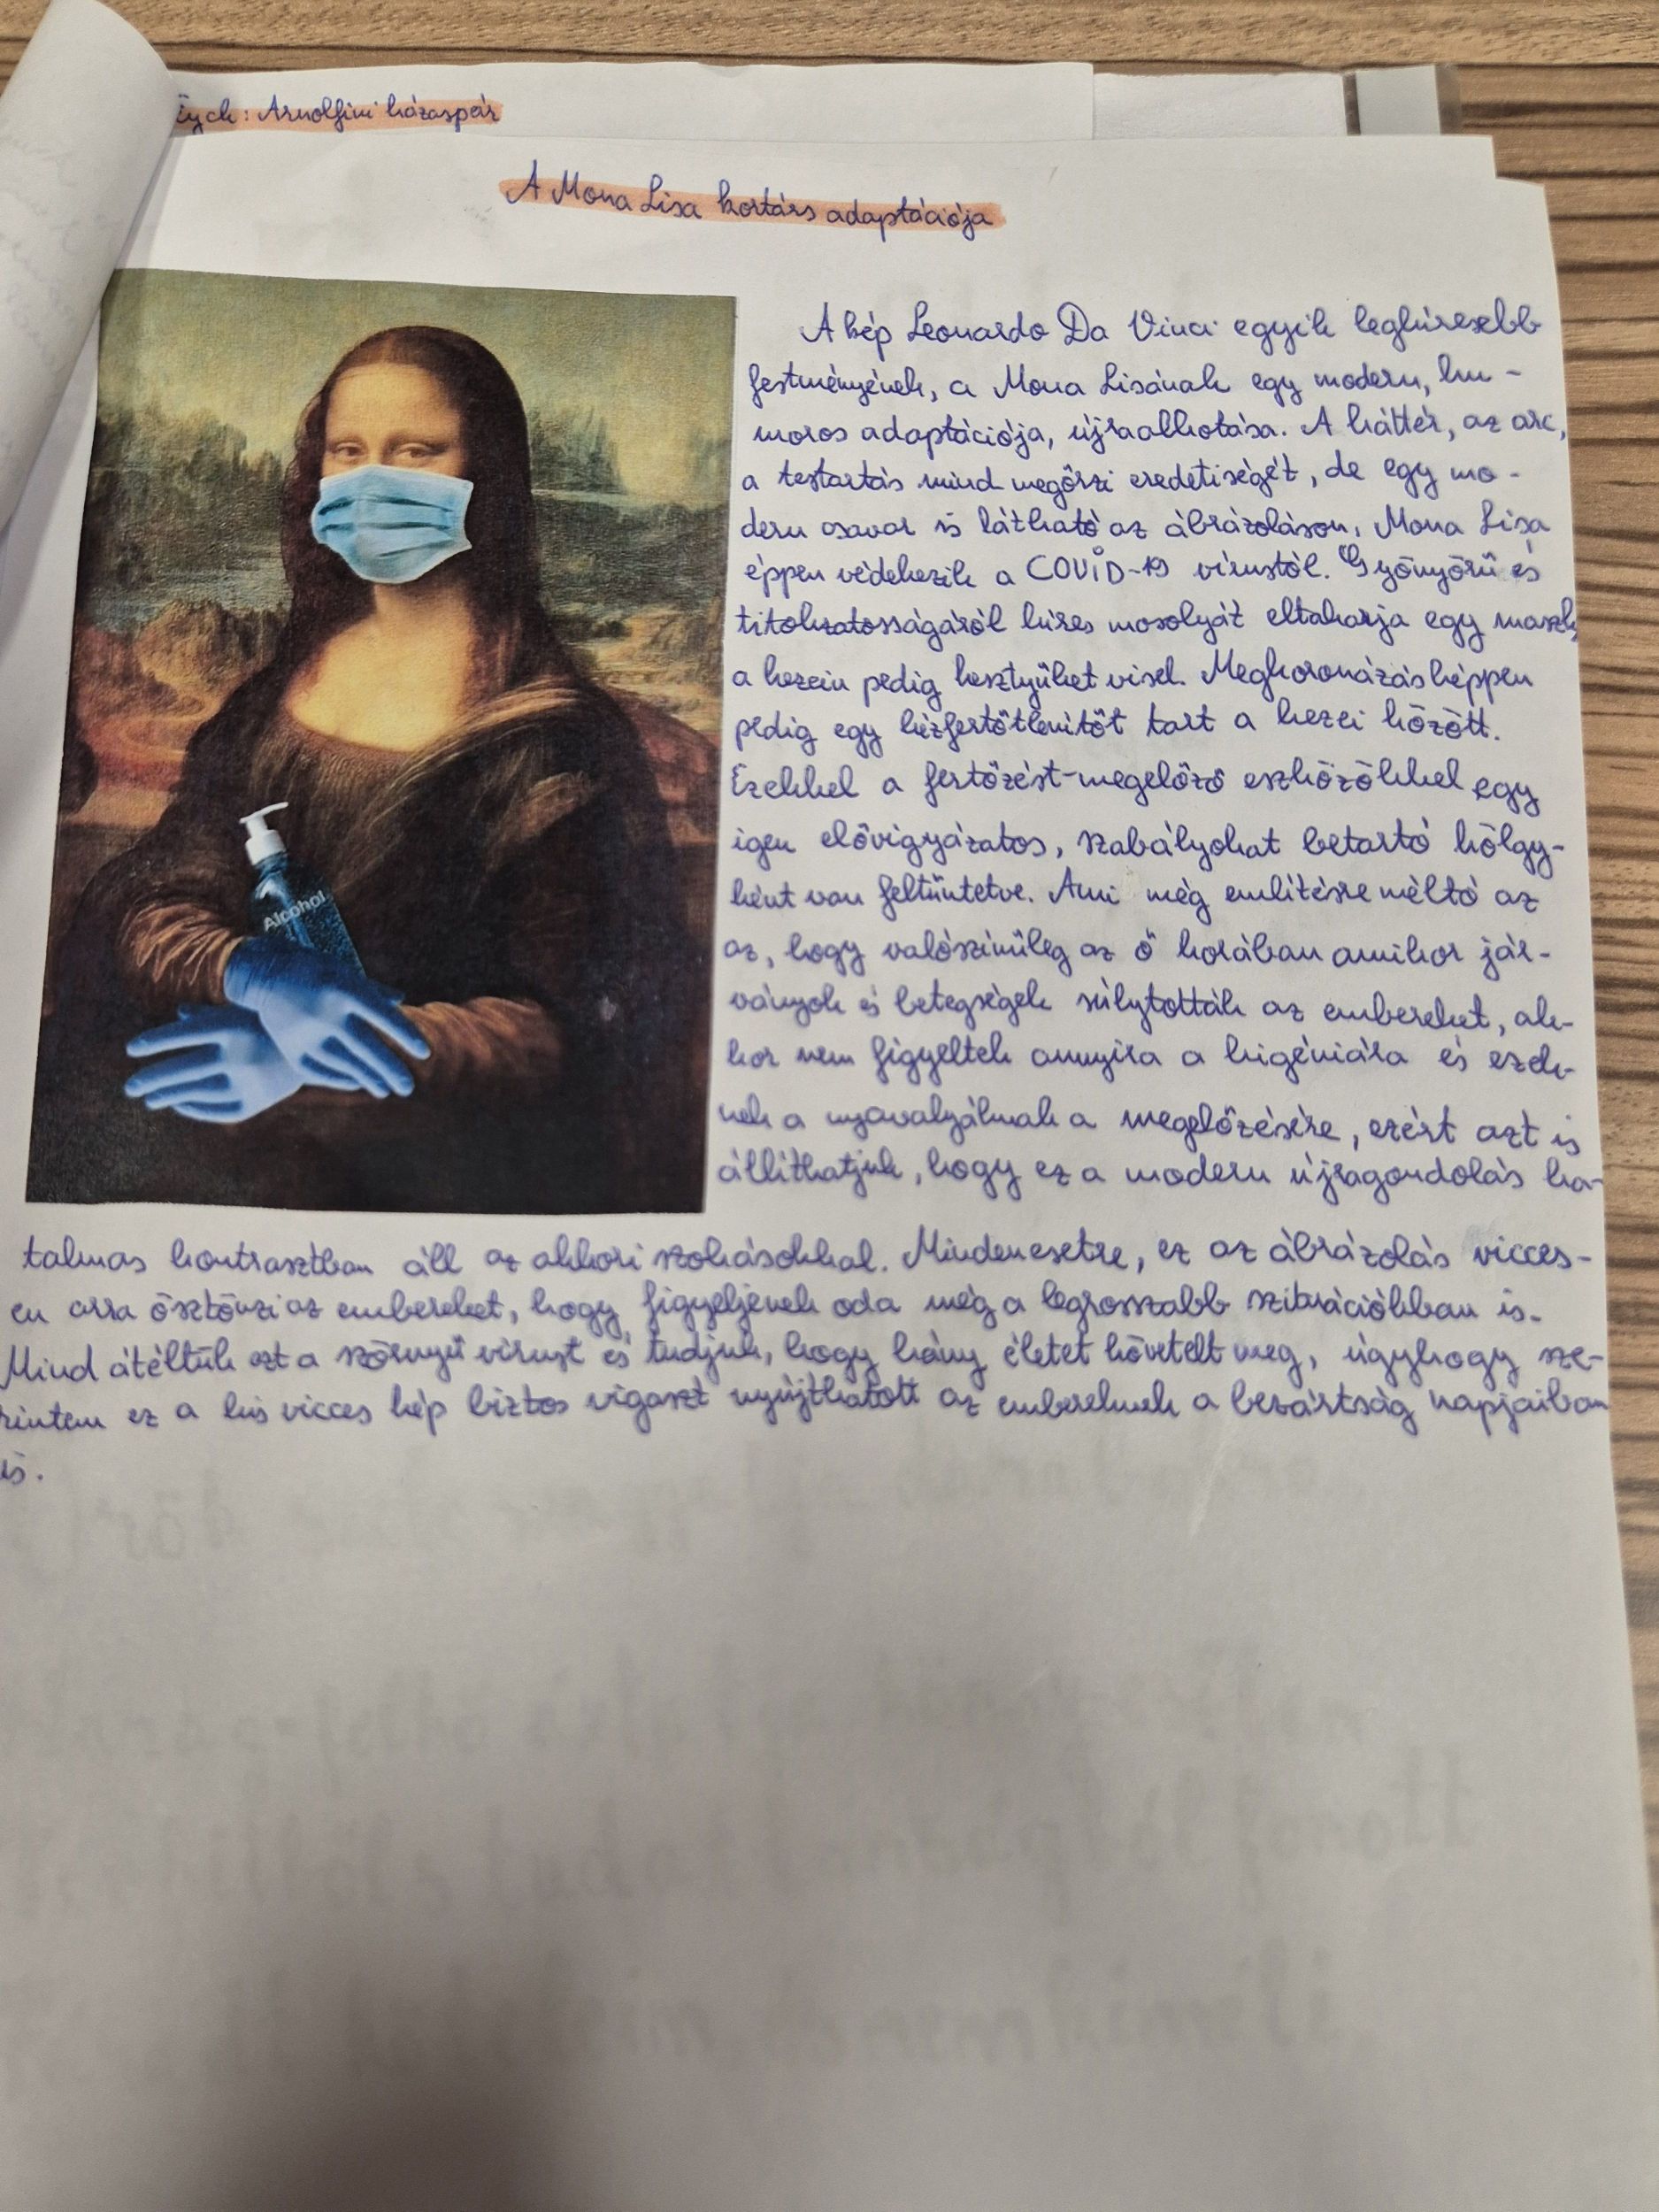 Eych: Arnolfini házaspár
A Mona Lisa kortárs adaptációja
A kép Leonardo Da Vinci egyik leghíresebb
festményének, a Mona Lisának egy modern, hu-
moros adaptációja, újraalkotása. A háttér, az arc,
a testartás mind megőrzi eredetiségét, de egy mo-
dern csavar is látható az ábrázoláson, Mona Lisa
éppen védekezik a COVID-19 vírustól. Gyönyörű és
titokzatosságáról híres mosolyát eltakarja egy maszk,
a kezein pedig kesztyűket visel. Megkoronázásképpen
pedig egy kézfertőtlenítőt tart a kezei között.
Ezekkel a fertőzést-megelőző eszközökkel egy
igen elővigyázatos, szabályokat betartó hölgy-
ként van feltüntetve. Ami még említésre méltó az
az, hogy valószínűleg az ő korában amikor jár-
ványok és betegségek súlytották az embereket, ak-
kor nem figyeltek annyira a higéniára és ezek-
nek a nyavalyáknak a megelőzésére, ezért azt is
állíthatjuk, hogy ez a modern újragondolás ha-
talmas kontrasztban áll az akkori szokásokkal. Mindenesetre, ez az ábrázolás vicces-
en arra ösztönzi az embereket, hogy figyeljenek oda még a legrosszabb szituációkban is.
Mind átéltük ezt a szörnyű vírust és tudjuk, hogy hány életet követelt meg, úgyhogy sze-
rintem ez a kis vicces kép biztos vigaszt nyújthatott az embereknek a bezártság napjaiban
is.
Alcohol